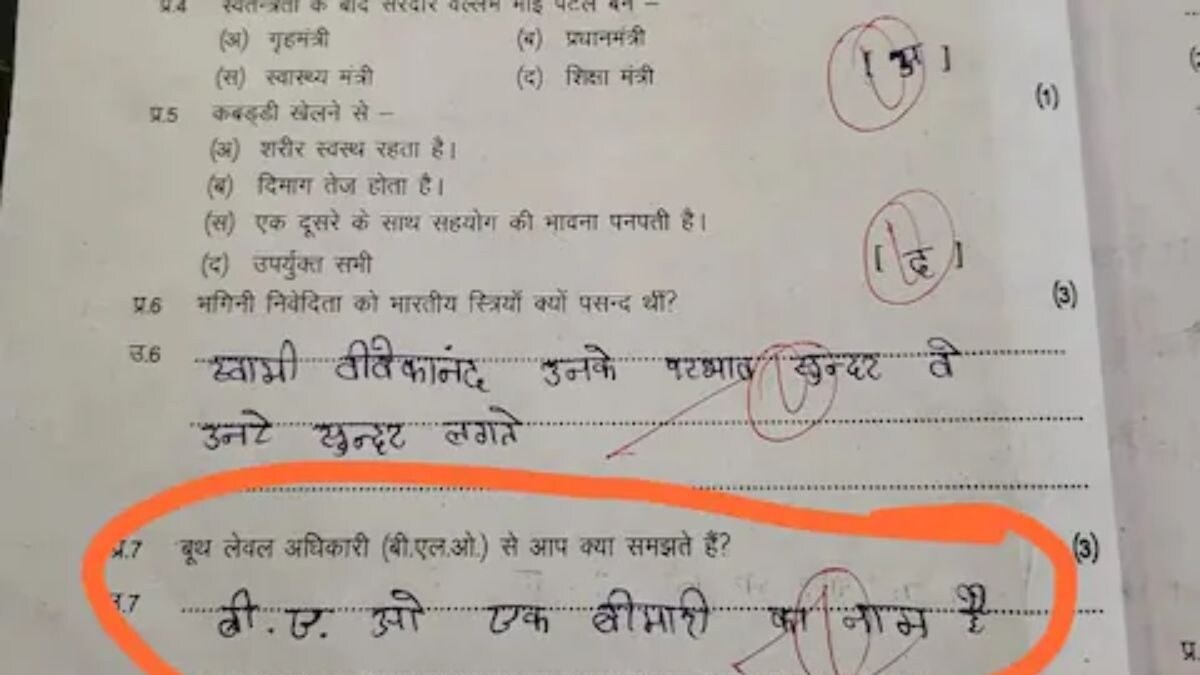 प्र.4 स्वतन्त्रता के बाद सरदार वल्लभ भाई पटेल बने –
(अ) गृहमंत्री (ब) प्रधानमंत्री
(स) स्वास्थ्य मंत्री (द) शिक्षा मंत्री [ अ ]
(1)
प्र.5 कबड्डी खेलने से –
(अ) शरीर स्वस्थ रहता है।
(ब) दिमाग तेज होता है।
(स) एक दूसरे के साथ सहयोग की भावना पनपती है।
(द) उपर्युक्त सभी [ द ]
प्र.6 भगिनी निवेदिता को भारतीय स्त्रियाँ क्यों पसन्द थीं? (3)
उ.6 स्वामी वीवेकानंद उनके सुन्दर वे
उनटे सुन्दर लगते
प्र.7 बूथ लेवल अधिकारी (बी.एल.ओ.) से आप क्या समझते हैं? (3)
उ.7 बी.ए. ओ एक बीमारी का नाम है
प्र.